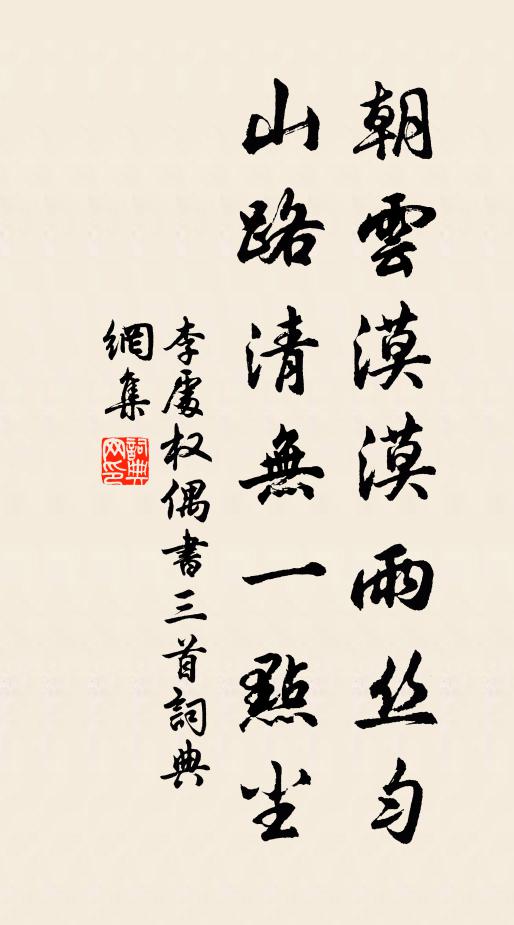 朝雲漠漠雨丝匀
山路清無一點尘
李處权偶書三首詞典
網集
詞典网印